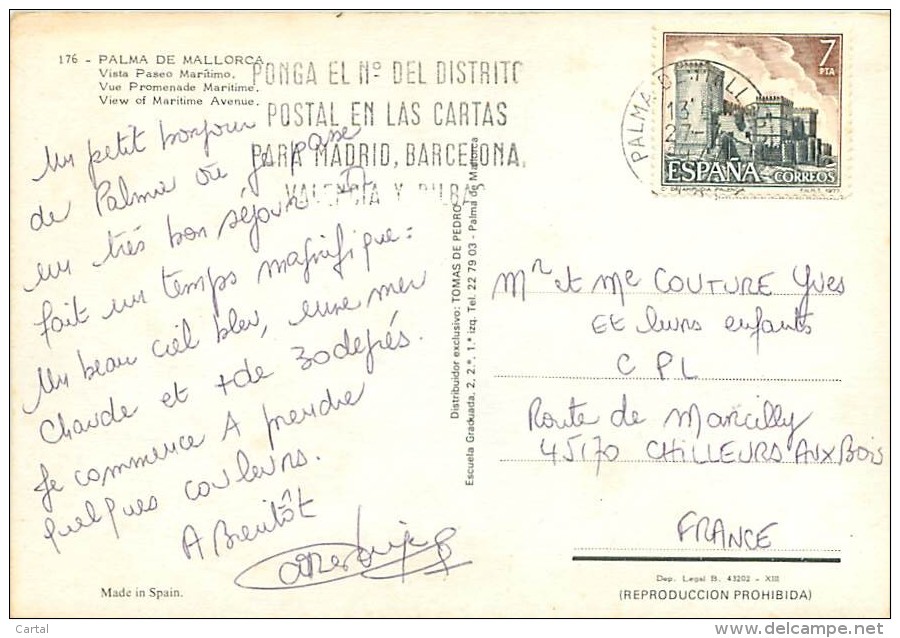 176 - PALMA DE MALLORCA
Vista Paseo Marítimo.
Vue Promenade Maritime.
View of Maritime Avenue.
PONGA EL Nº DEL DISTRITO
POSTAL EN LAS CARTAS
PARA MADRID, BARCELONA,
VALENCIA Y BILBAO
7
PTA
PALMA DE MALLORCA
13
27
ESPAÑA CORREOS
Un petit bonjour
de Palma où je passe
un très bon séjour. Il
fait un temps magnifique :
Un beau ciel bleu, une mer
chaude et + de 30 degrés.
Je commence A prendre
quelques couleurs.
A Bientôt
Distribuidor exclusivo: TOMAS DE PEDRO
Escuela Graduada, 2, 2.º, 1.ª izq. Tel. 22 79 03 - Palma de Mallorca
Mr et Me COUTURE Yves
ET leurs enfants
C P L
Route de Marcilly
45170 CHILLEURS AUX BOIS
FRANCE
Dep. Legal B. 43202 - XIII
(REPRODUCCION PROHIBIDA)
Made in Spain.
Cartal
www.delcampe.net